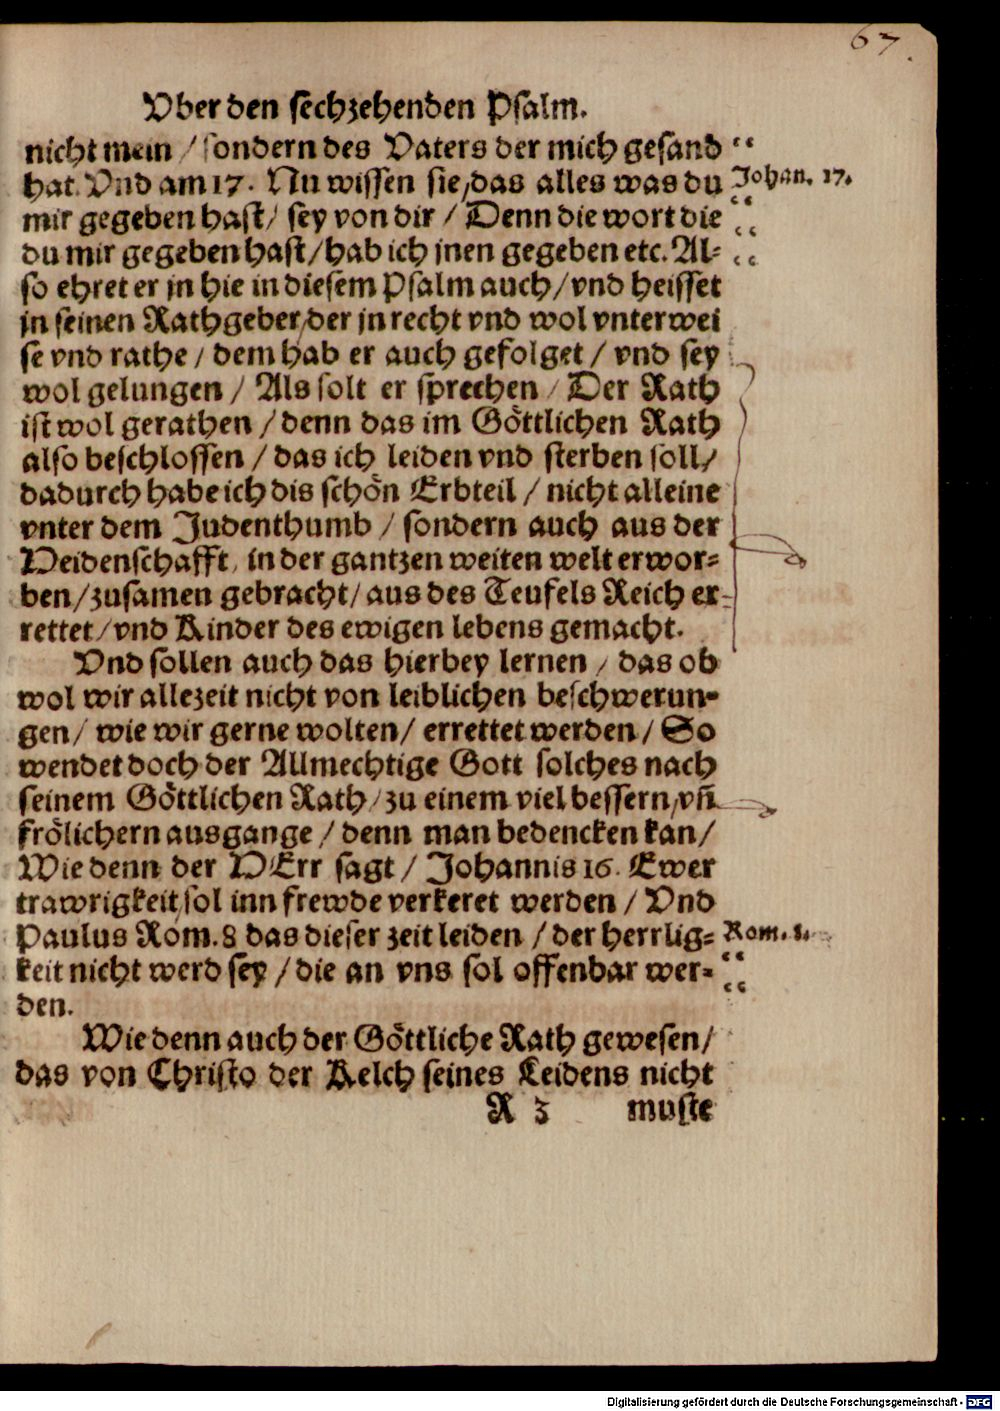 67.
Vber den sechzehenden Psalm.
nicht mein / sondern des Vaters der mich gesand
hat. Vnd am 17. Nu wissen sie / das alles was du
Johan. 17.
mir gegeben hast / sey von dir / Denn die wort die
du mir gegeben hast / hab ich jnen gegeben etc. Al-
so ehret er jn hie in diesem Psalm auch / vnd heisset
jn seinen Rathgeber / der jn recht vnd wol vnterwei
se vnd rathe / dem hab er auch gefolget / vnd sey
wol gelungen / Als solt er sprechen / Der Rath
ist wol gerathen / denn das im Göttlichen Rath
also beschlossen / das ich leiden vnd sterben soll /
dadurch habe ich dis schön Erbteil / nicht alleine
vnter dem Judenthumb / sondern auch aus der
Heidenschafft / in der gantzen weiten welt erwor-
ben / zusamen gebracht / aus des Teufels Reich er-
rettet / vnd Kinder des ewigen lebens gemacht.
Vnd sollen auch das hierbey lernen / das ob
wol wir allezeit nicht von leiblichen beschwerun-
gen / wie wir gerne wolten / errettet werden / So
wendet doch der Allmechtige Gott solches nach
seinem Göttlichen Rath / zu einem viel bessern / vñ
frölichern ausgange / denn man bedencken kan /
Wie denn der HErr sagt / Johannis 16. Ewer
trawrigkeit / sol inn frewde verkeret werden / Vnd
Paulus Rom. 8 das dieser zeit leiden / der herrlig-
Rom. 8.
keit nicht werd sey / die an vns sol offenbar wer-
den.
Wie denn auch der Göttliche Rath gewesen /
das von Christo der Kelch seines Leidens nicht
R 3 muste
Digitalisierung gefördert durch die Deutsche Forschungsgemeinschaft - DFG